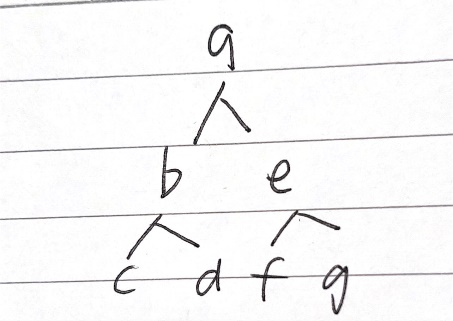 a
b e
c d f g